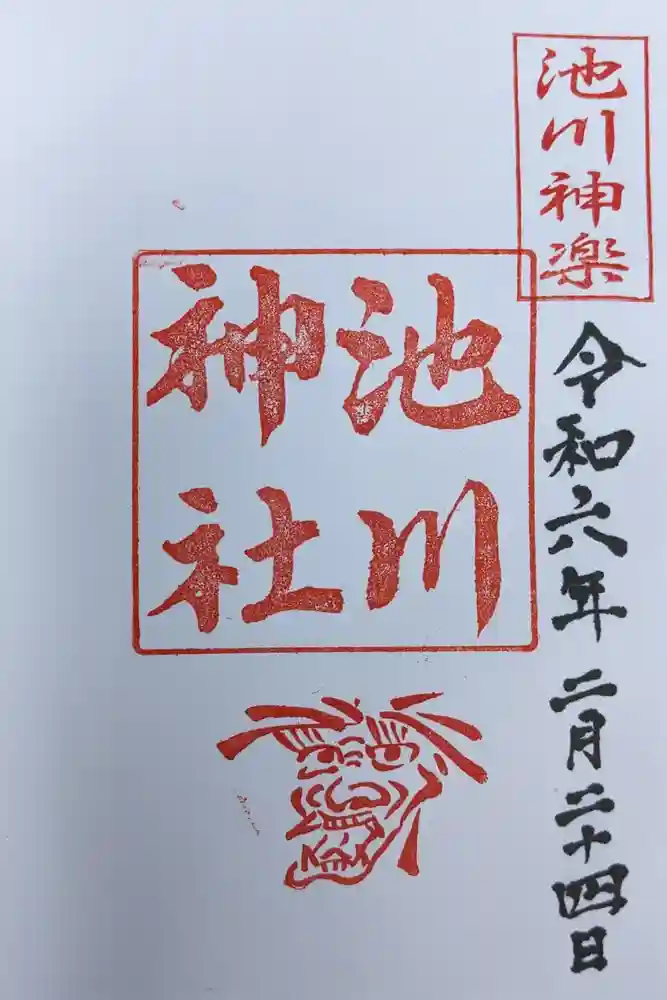 池川神楽
令和六年二月二十四日
池川
神社